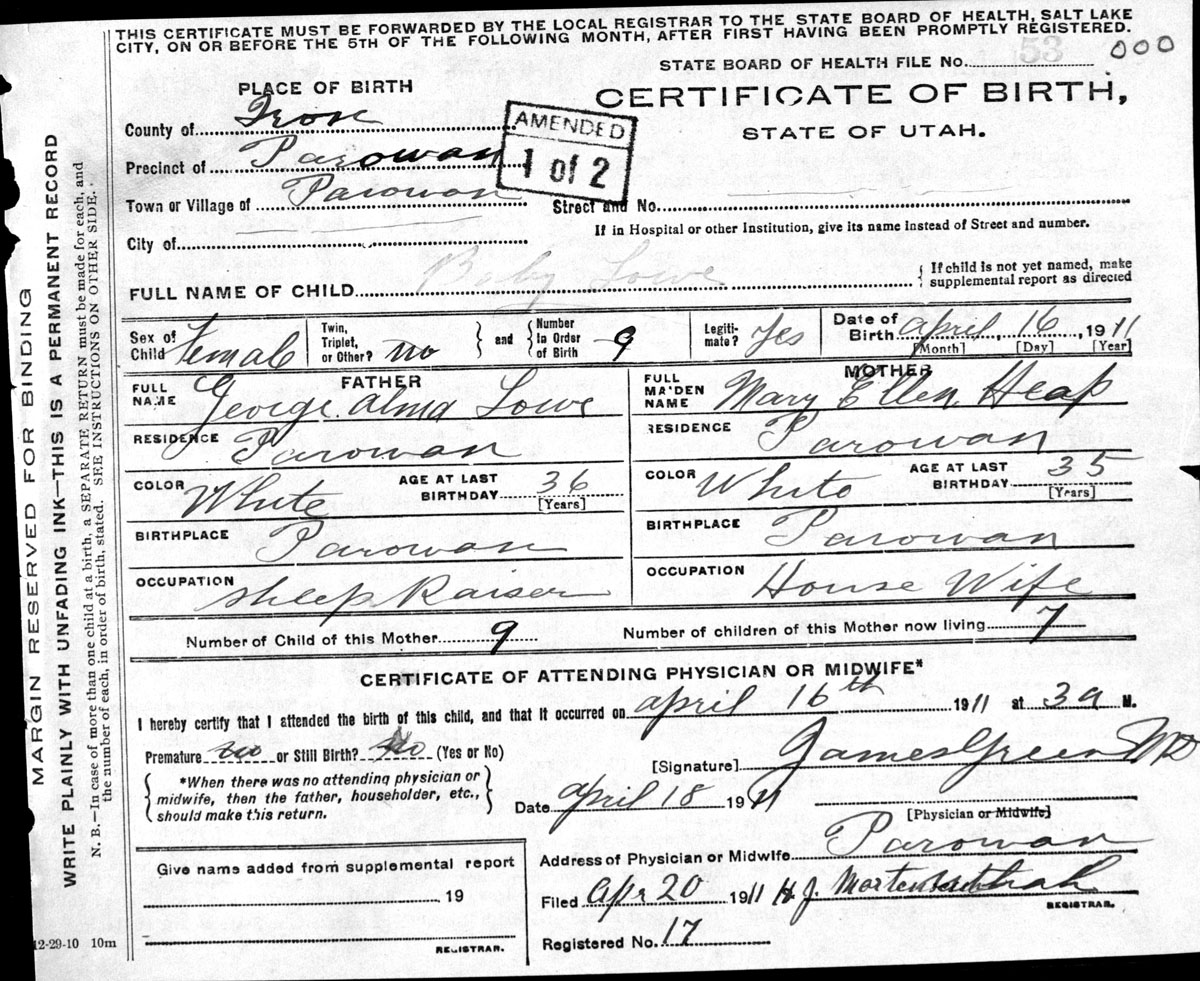 THIS CERTIFICATE MUST BE FORWARDED BY THE LOCAL REGISTRAR TO THE STATE BOARD OF HEALTH, SALT LAKE
CITY, ON OR BEFORE THE 5TH OF THE FOLLOWING MONTH, AFTER FIRST HAVING BEEN PROMPTLY REGISTERED.
53
000
STATE BOARD OF HEALTH FILE No.
PLACE OF BIRTH
CERTIFICATE OF BIRTH,
STATE OF UTAH.
County of Iron
AMENDED
1 of 2
Precinct of Parowan
Town or Village of Parowan
Street and No.
If in Hospital or other Institution, give its name instead of Street and number.
City of
FULL NAME OF CHILD Baby Lowe
If child is not yet named, make
supplemental report as directed
Sex of Child Female
Twin, Triplet, or Other? no
and
Number in Order of Birth 9
Legiti-mate? Yes
Date of Birth April 16, 1911
[Month] [Day] [Year]
FATHER
FULL NAME George Alma Lowe
RESIDENCE Parowan
COLOR White
AGE AT LAST BIRTHDAY 36
[Years]
BIRTHPLACE Parowan
OCCUPATION Sheep Raiser
MOTHER
FULL MAIDEN NAME Mary Ellen Heap
RESIDENCE Parowan
COLOR White
AGE AT LAST BIRTHDAY 35
[Years]
BIRTHPLACE Parowan
OCCUPATION House Wife
Number of Child of this Mother 9
Number of children of this Mother now living 7
CERTIFICATE OF ATTENDING PHYSICIAN OR MIDWIFE*
I hereby certify that I attended the birth of this child, and that it occurred on April 16th 1911 at 3 a M.
Premature no or Still Birth? no (Yes or No)
*When there was no attending physician or
midwife, then the father, householder, etc.,
should make this return.
[Signature] James Green MD
Date April 18 1911
[Physician or Midwife]
Address of Physician or Midwife Parowan
Give name added from supplemental report
19
REGISTRAR.
Filed Apr 20 1911 H J.
REGISTRAR.
Registered No. 17
12-29-10 10m
MARGIN RESERVED FOR BINDING
WRITE PLAINLY WITH UNFADING INK—THIS IS A PERMANENT RECORD
N. B.—In case of more than one child at a birth, a SEPARATE RETURN must be made for each, and
the number of each, in order of birth, stated. SEE INSTRUCTIONS ON OTHER SIDE.